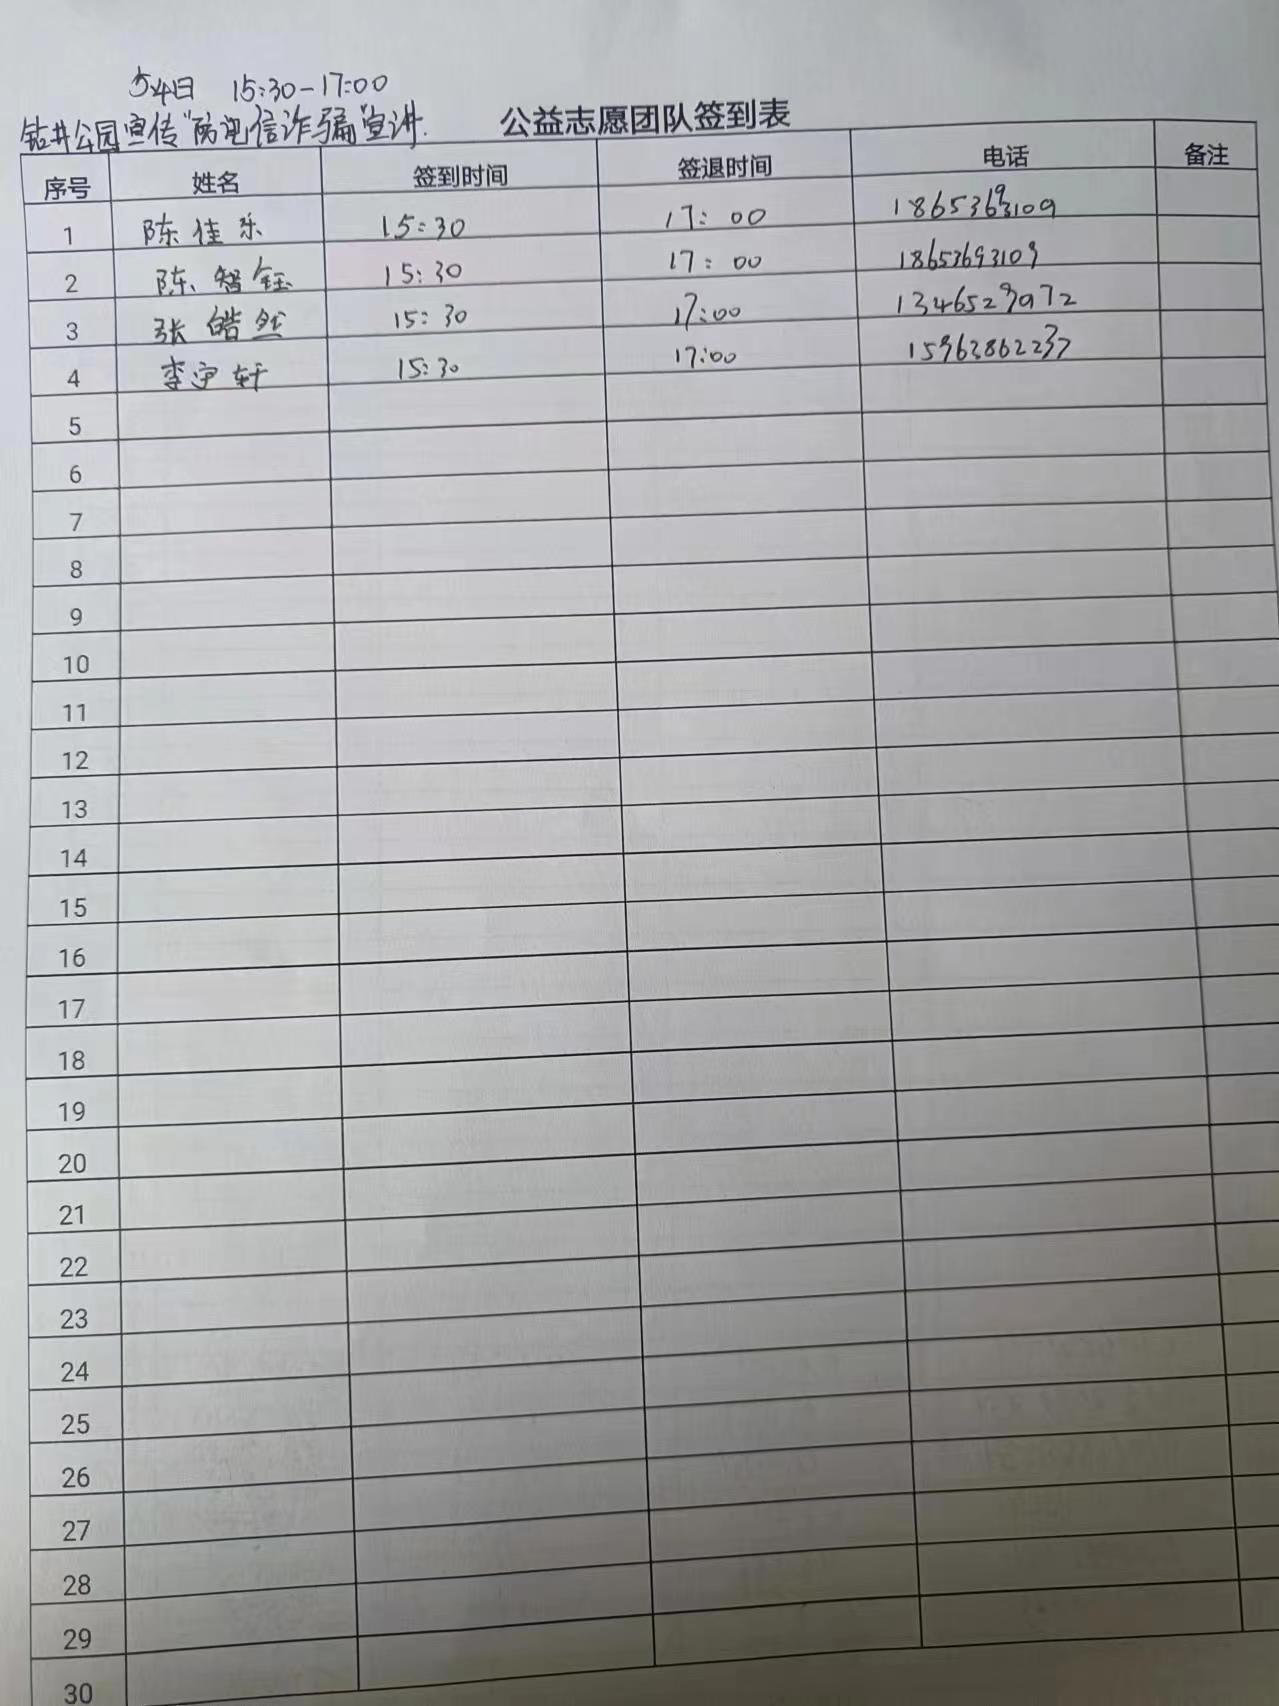 5.4日 15:30-17:00
钻井公园宣传"防电信诈骗"宣讲.
公益志愿团队签到表
序号 姓名 签到时间 签退时间 电话 备注
1 陈佳乐 15:30 17:00 18653693109
2 陈智钰 15:30 17:00 18653693109
3 张皓然 15:30 17:00 13465239072
4 李宇轩 15:30 17:00
5
6
7
8
9
10
11
12
13
14
15
16
17
18
19
20
21
22
23
24
25
26
27
28
29
30